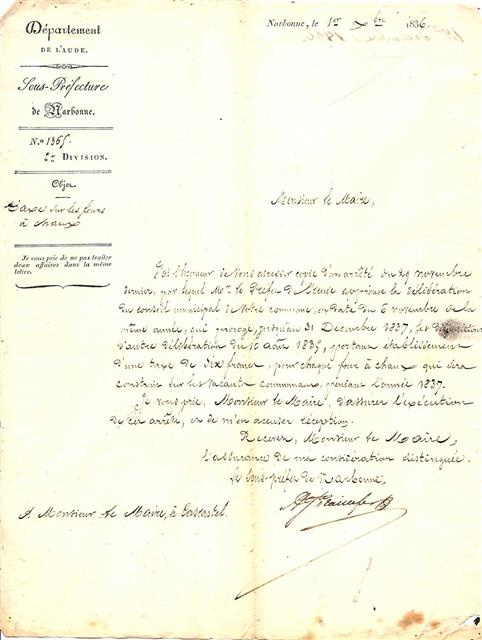 Département
DE L'AUDE.
Sous-Préfecture
de Narbonne.
N.º 1365.
2.e DIVISION.
Objet.
Taxe sur les fours
à chaux
Je vous prie de ne pas traiter
deux affaires dans la même
lettre.
Narbonne, le 1er Xbre 1836.
Monsieur le Maire,
J'ai l'honneur de vous adresser copie d'un arrêté du 29 novembre
dernier, par lequel Mr. le Préfet de l'Aude approuve la délibération
du conseil municipal de votre commune, en date du 6 novembre de la
même année, qui proroge, jusqu'au 31 Décembre 1837, les dispositions
d'autre délibération du 10 août 1835, portant établissement
d'une taxe de dix francs, pour chaque four à chaux qui sera
construit sur les vacants communaux, pendant l'année 1837.
Je vous prie, Monsieur le Maire, d'assurer l'exécution
de cet arrêté, et de m'en accuser réception.
Recevez, Monsieur le Maire,
l'assurance de ma considération distinguée.
Le Sous-préfet de Narbonne,
A Monsieur le Maire, à Cascastel.